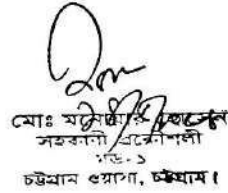 মোঃ মনোয়ার হোসেন
সহকারী প্রকৌশলী
মড- ১
চট্টগ্রাম ওয়াসা, চট্টগ্রাম।